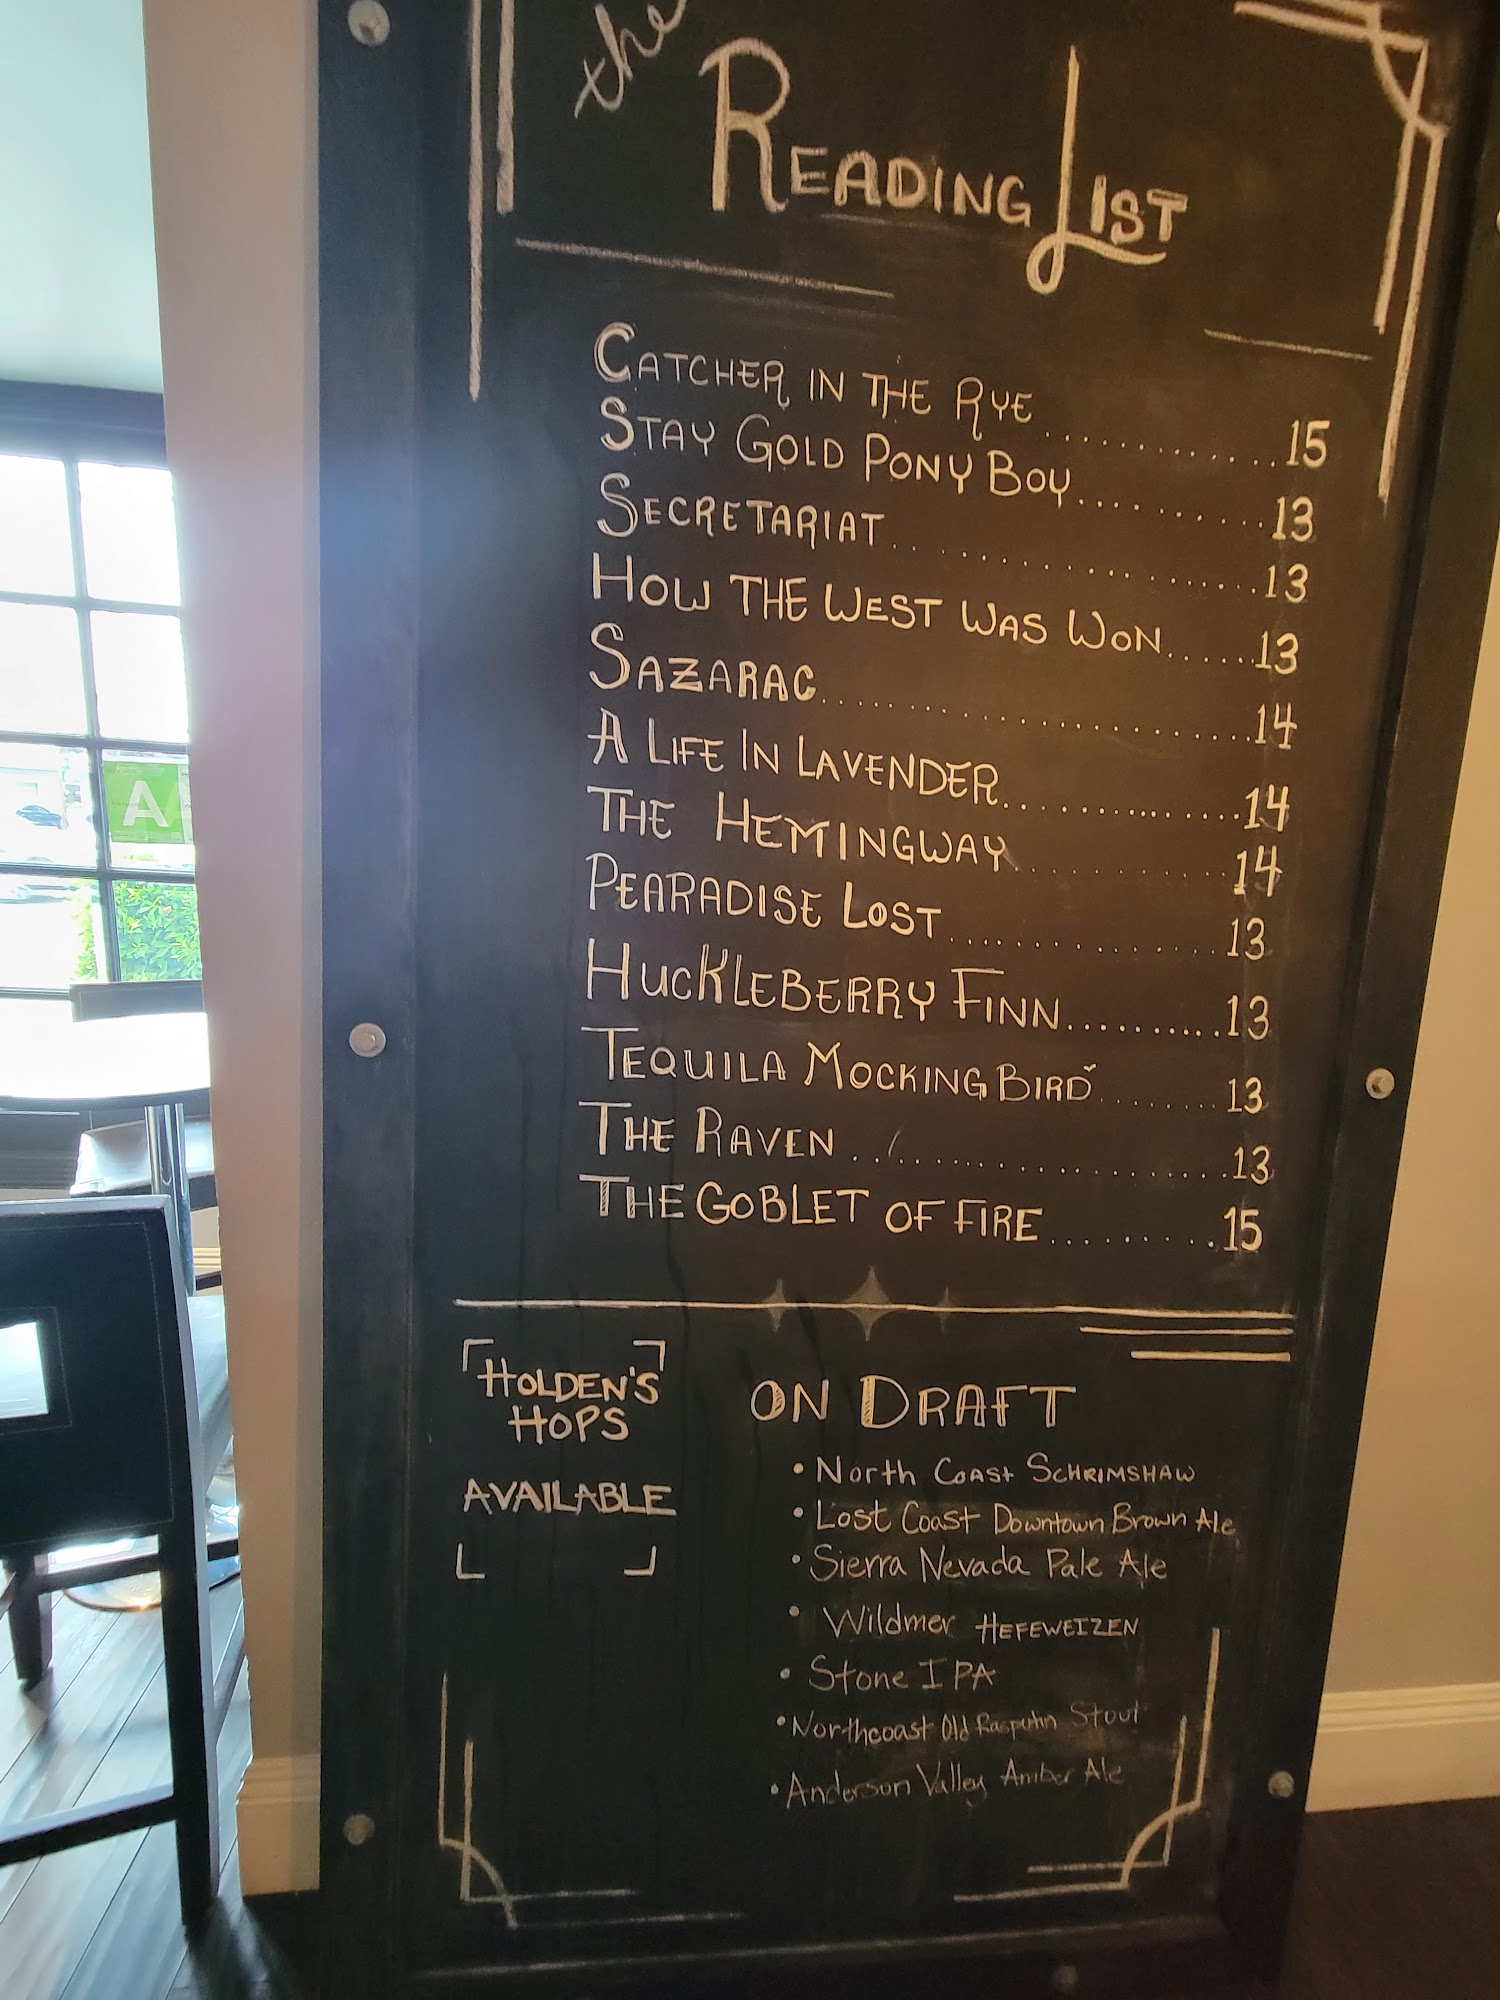 the
READING LIST
CATCHER IN THE RYE.............15
STAY GOLD PONY BOY..........13
SECRETARIAT....................13
HOW THE WEST WAS WON......13
SAZARAC.......................14
A LIFE IN LAVENDER.................14
THE HEMINGWAY.............14
PEARADISE LOST................13
HUCKLEBERRY FINN..........13
TEQUILA MOCKING BIRD........13
THE RAVEN......................13
THE GOBLET OF FIRE.........15
HOLDEN'S
HOPS
AVAILABLE
ON DRAFT
• North COAST SCHRIMSHAW
• Lost Coast Downtown Brown Ale
• Sierra Nevada Pale Ale
• Wildmer HEFEWEIZEN
• Stone IPA
• Northcoast Old Rasputin Stout
• Anderson Valley Amber Ale
A